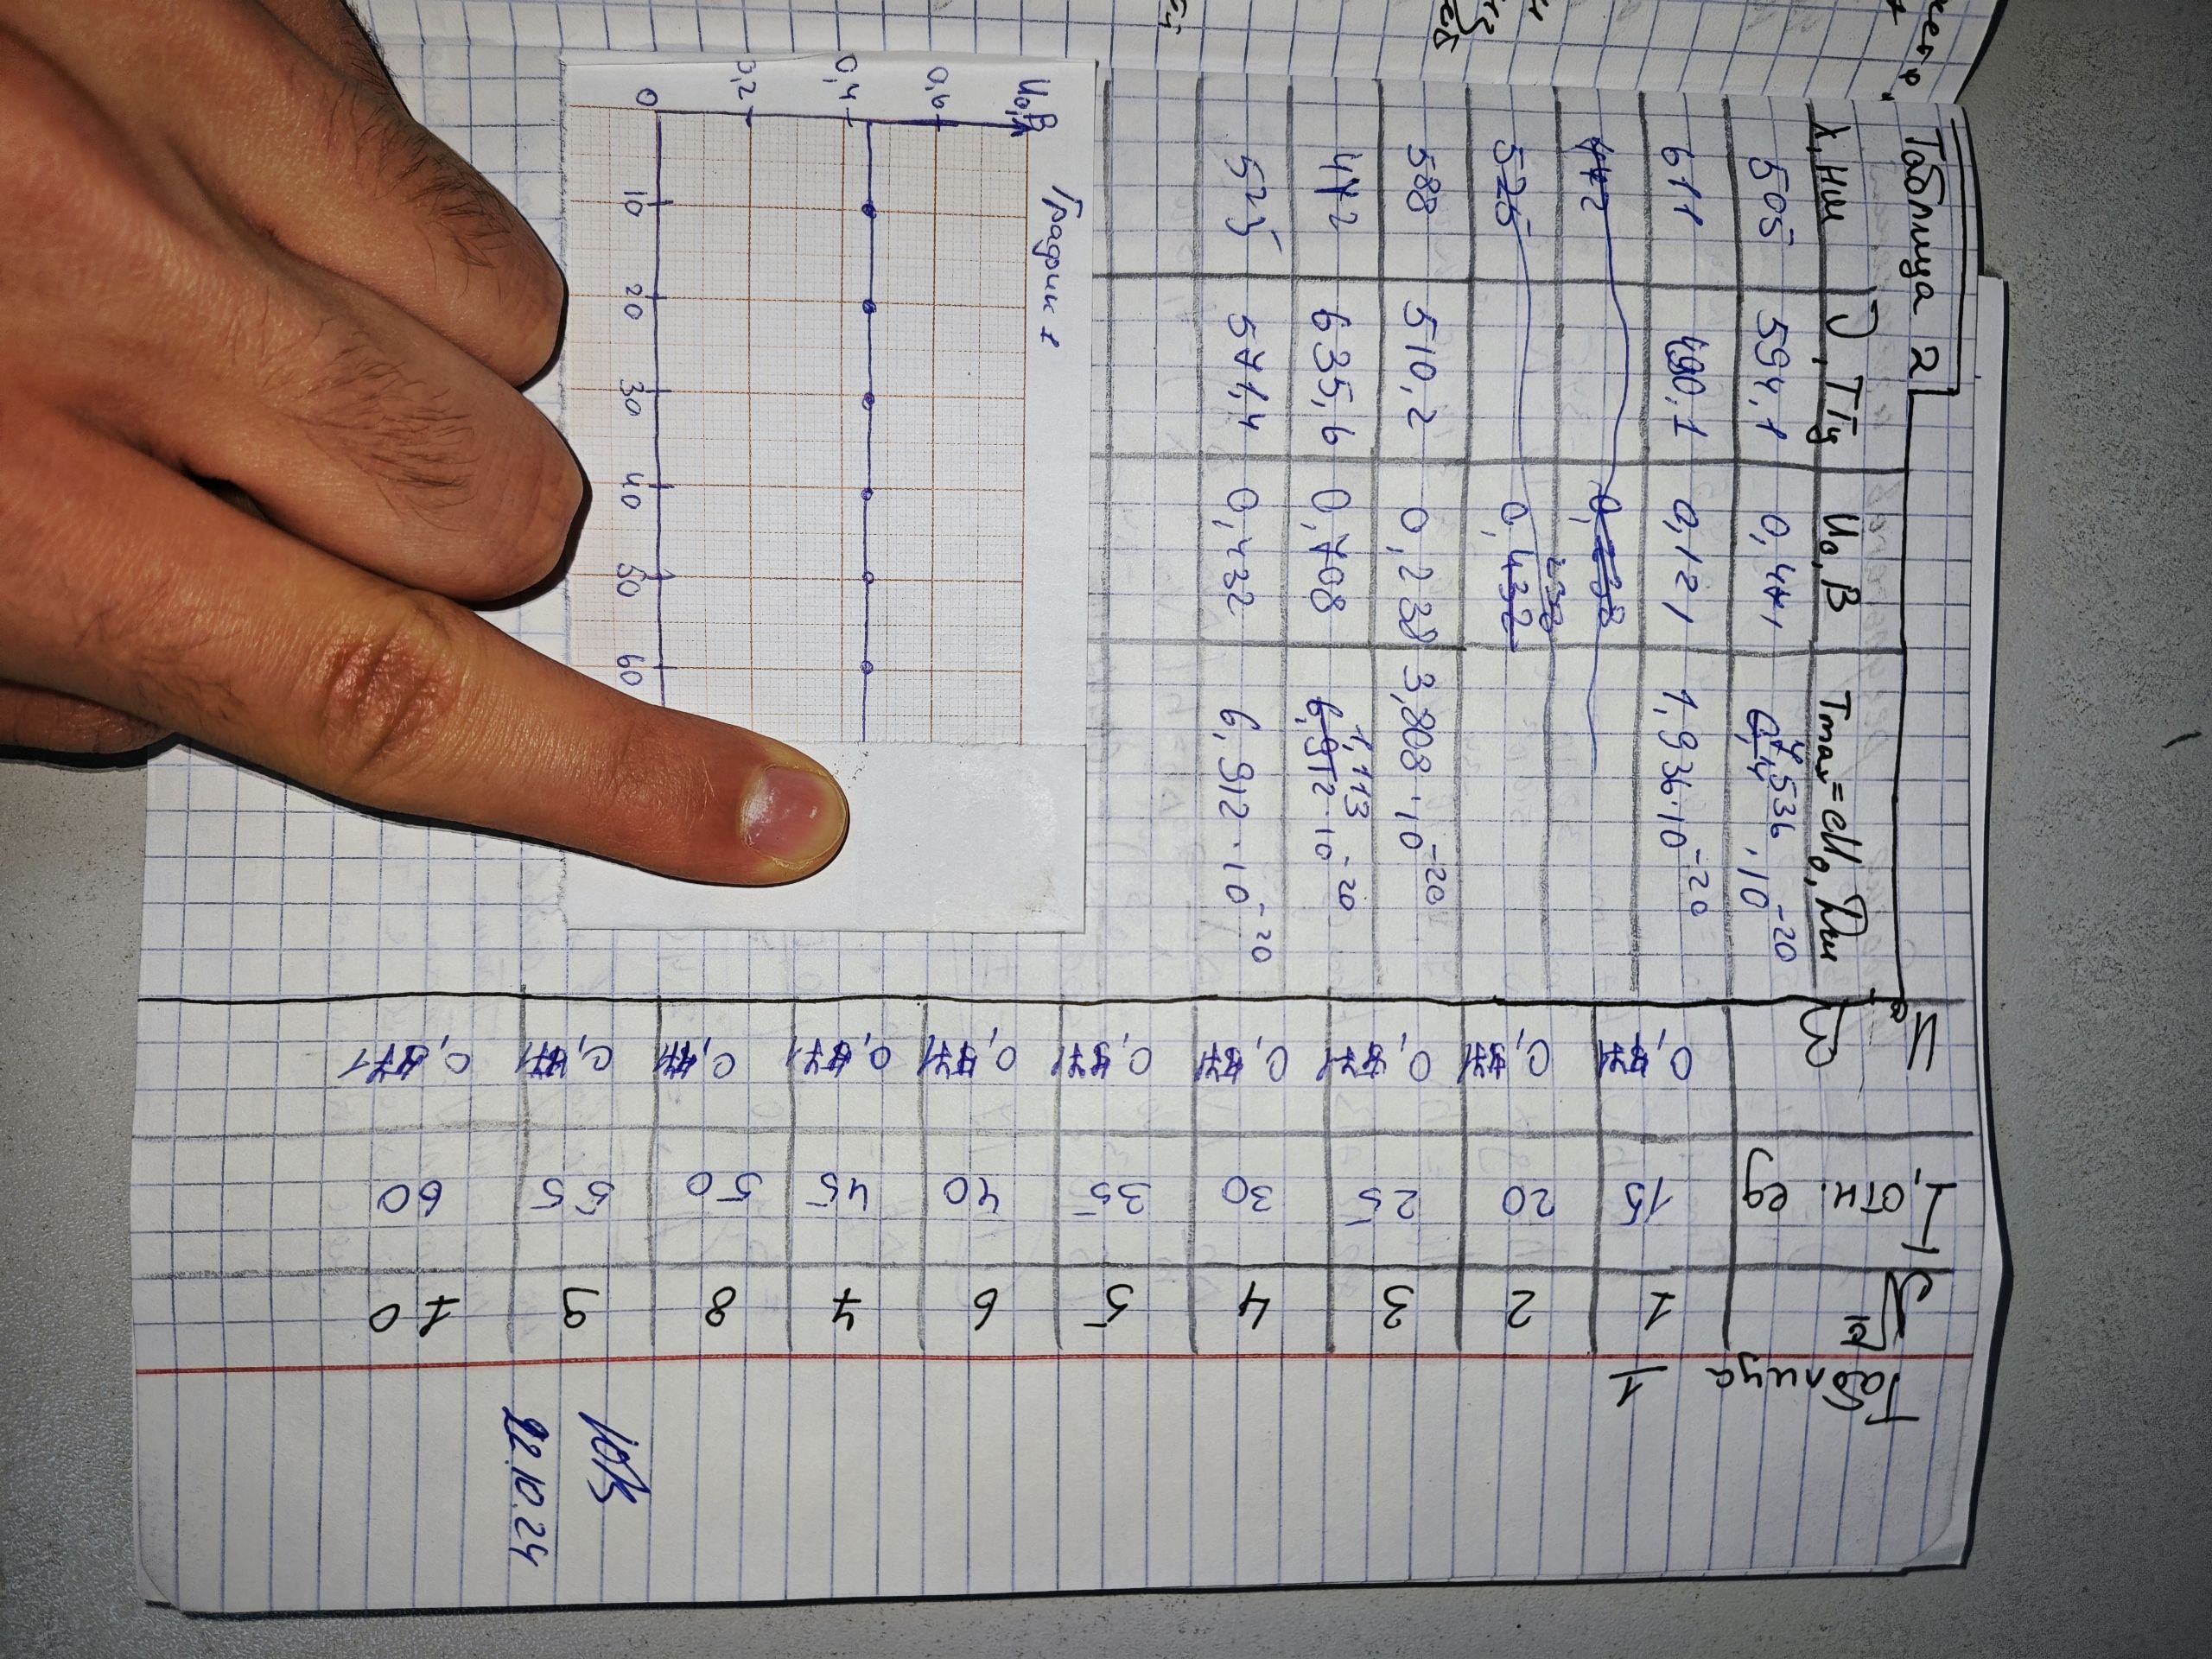 Таблица 2
λ, нм ν, ТГц U₀, В Tmax=eU₀, Дж
505 594,1 0,471 4,536 · 10⁻²⁰
611 490,1 0,121 1,936 · 10⁻²⁰
472
525 0,432
588 510,2 0,238 3,808 · 10⁻²⁰
472 635,6 0,708 1,113 6,912 · 10⁻²⁰
525 571,4 0,432 6,912 · 10⁻²⁰
График 1
U₀, В
0,6
0,4
0,2
0
10 20 30 40 50 60
Таблица 1
I, отн. ед
1 15 0,471
2 20 0,471
3 25 0,471
4 30 0,471
5 35 0,471
6 40 0,471
7 45 0,471
8 50 0,471
9 55 0,471
10 60 0,471
22.10.24